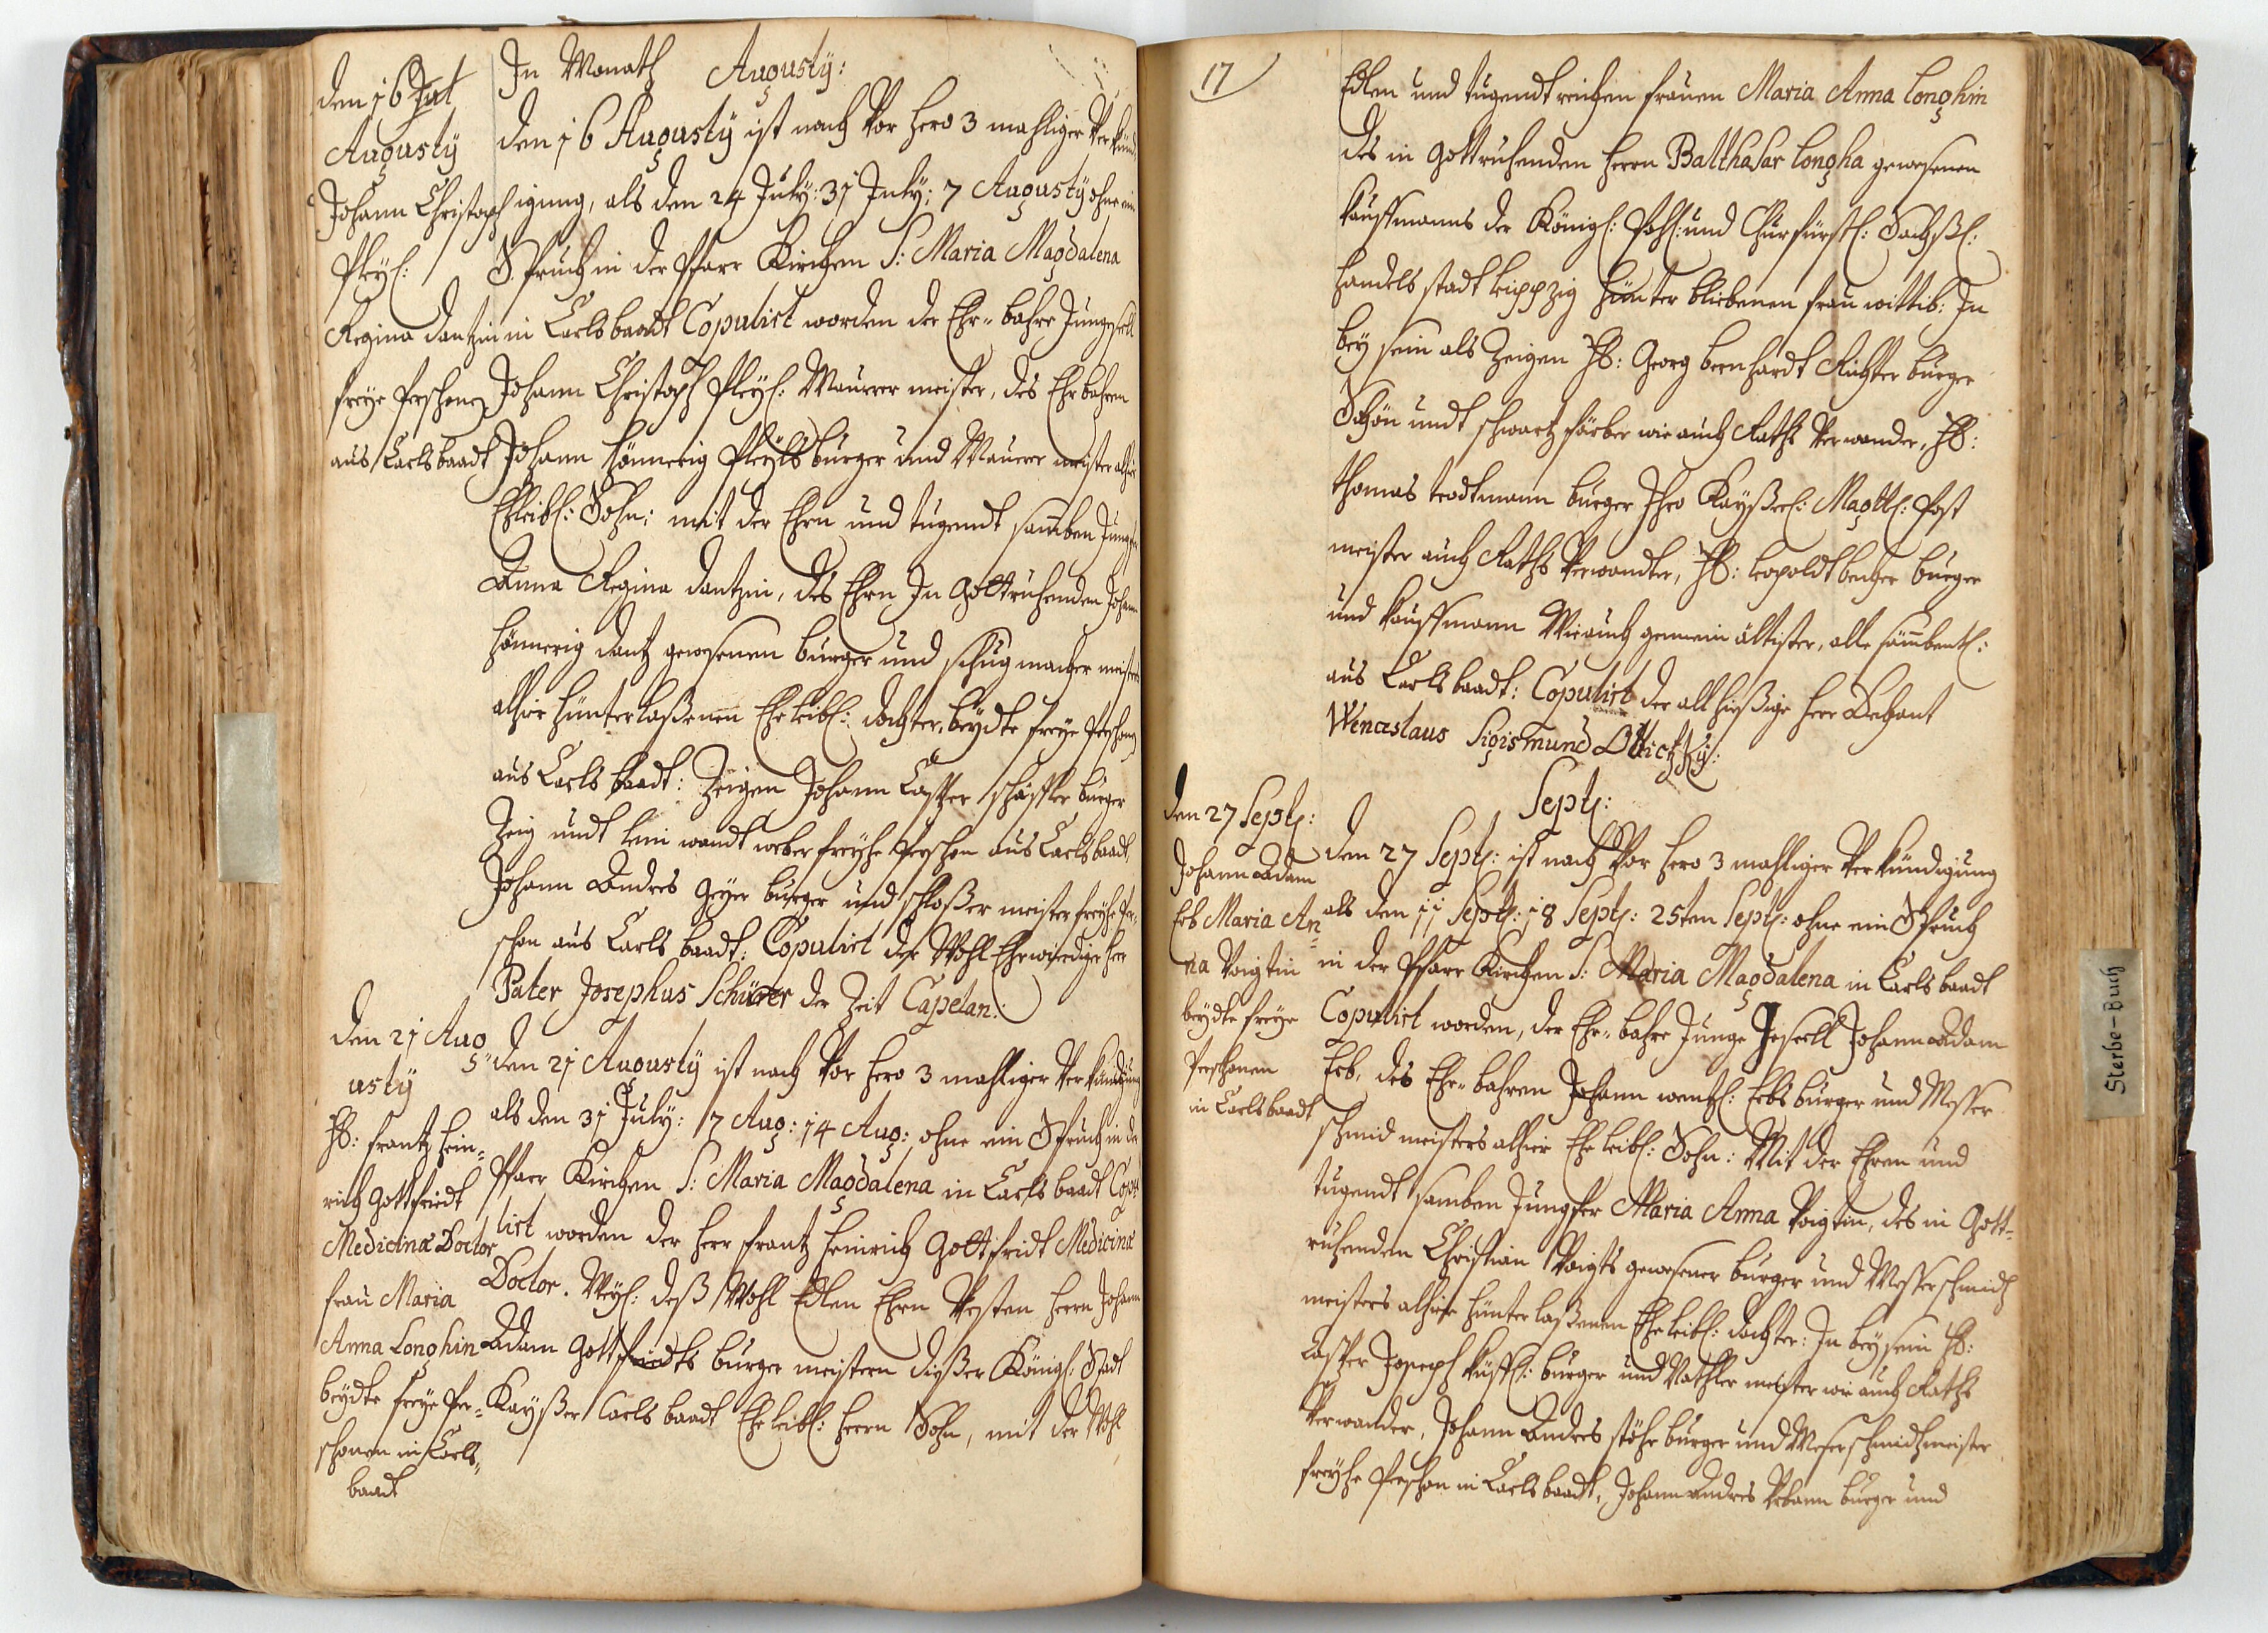 In Monath Augusty:
den 16 Jul
Augusty
Johann Christoph
Pleyl:
Regina Dantzin
freye Perschonen
aus Carlsbaadt
den 16 Augusty ist nach Vor hero 3 mahliger Verkünd
igung, als den 24 July: 31 July: 7 Augusty ohne ein
Spruch in der Pfarr Kirchen S: Maria Magdalena
in Carlsbaadt Copulirt worden der Ehr-bahre Junggesell
Johann Christoph Pleyl: Maurer meister, des Ehrbahren
Johann Hönnerig Pleyls burger und Maurer meister alhier
Ehleibl: Sohn: mit der Ehrn und tugendt samben Jungfer
Anna Regina Dantzin, des Ehrn In Gott ruhenden Johann
Hönnerig Dantz gewesenen burger und schug macher meisters
alhier hünterlaßenen Ehe leibl: dochter, beydte freye Perschonen
aus Carls baadt: Zeigen Johann Casper schäffler burger
Zeig undt lein wandt weber freyhe Perschon aus Carlsbaadt,
Johann Andres Geyer burger und schloßer meister freyhe Per-
schon aus Carls baadt: Copulirt der Wohl Ehrwierdige Herr
Pater Josephus Schürer der Zeit Capelan:
den 21 Aug
usty
H: Frantz Hein-
rich Gottfriedt
Medicinæ Doctor
frau Maria
Anna Longhin
beydte freye Per-
schonen in Carls-
baadt
den 21 Augusty ist nach Vor hero 3 mahliger Verkündigung
als den 31 July: 7 Aug: 14 Aug: ohne ein Spruch in der
Pfarr Kirchen S: Maria Magdalena in Carls baadt Copu
lirt worden der Herr Frantz Heinrich Gottfridt Medicinæ
Doctor. Weyl: deß Wohl Edlen Ehrn Vesten Herrn Johann
Adam Gottfriedts burger meistern dießer Königl: Stadt
Kayßer Carls baadt Ehe leibl: Herrn Sohn, mit der Wohl
17
Edlen und tugendt reichen frauen Maria Anna Longhin
des in Gott ruhenden Herrn Balthasar Longha gewesenen
kauffmanns der Königl: Pohl: und Churfürstl: Sachßl:
Handels stadt Leippzig hünter bliebenen frau wittib: In
bey sein als Zeigen H: Georg bernhardt Richter burger
Schön undt schwartz färber wie auch Raths Verwander, H:
Thomas trodtmann burger Ihro Kayßerl: Magtl: Post
meister auch Raths Verwandter, H: Leopoldt becher burger
und kauffmann Wie auch gemein ältister, alle sämbentl:
aus Carls baadt: Copulirt der all hießige Herr Dechant
Wenceslaus Sigismund Ottictzky:
Septl:
den 27 Septl:
Johann Adam
Erb Maria An-
na Voigtin
beydte freye
Perschonen
in Carlsbaadt
den 27 Septl: ist nach Vor hero 3 mahliger Verkündigung
als den 11 Septl: 18 Septl: 25ten Septl: ohne ein Spruch
in der Pfarr Kirchen S: Maria Magdalena in Carls baadt
Copulirt worden, der Ehr-bahre Junge Gesell Johann Adam
Erb, des Ehr-bahren Johann wentzl: Erbs burger und Messer
schmid meisters alhier Ehe leibl: Sohn: Mit der Ehren und
tugendt samben Jungfer Maria Anna Voigtin, des in Gott-
ruhenden Christian Voigts gewesener burger und Messerschmidt
meisters alhier hünter laßenen Ehe leibl: dochter: In beysein H:
Casper Joseph küffl: burger und Nathler meister wie auch Raths
Verwander, Johann Andres stöhr burger und Meserschmidtmeister
freyhe Perschon in Carlsbaadt, Johann Andres Urbann burger und
Sterbe-Buch